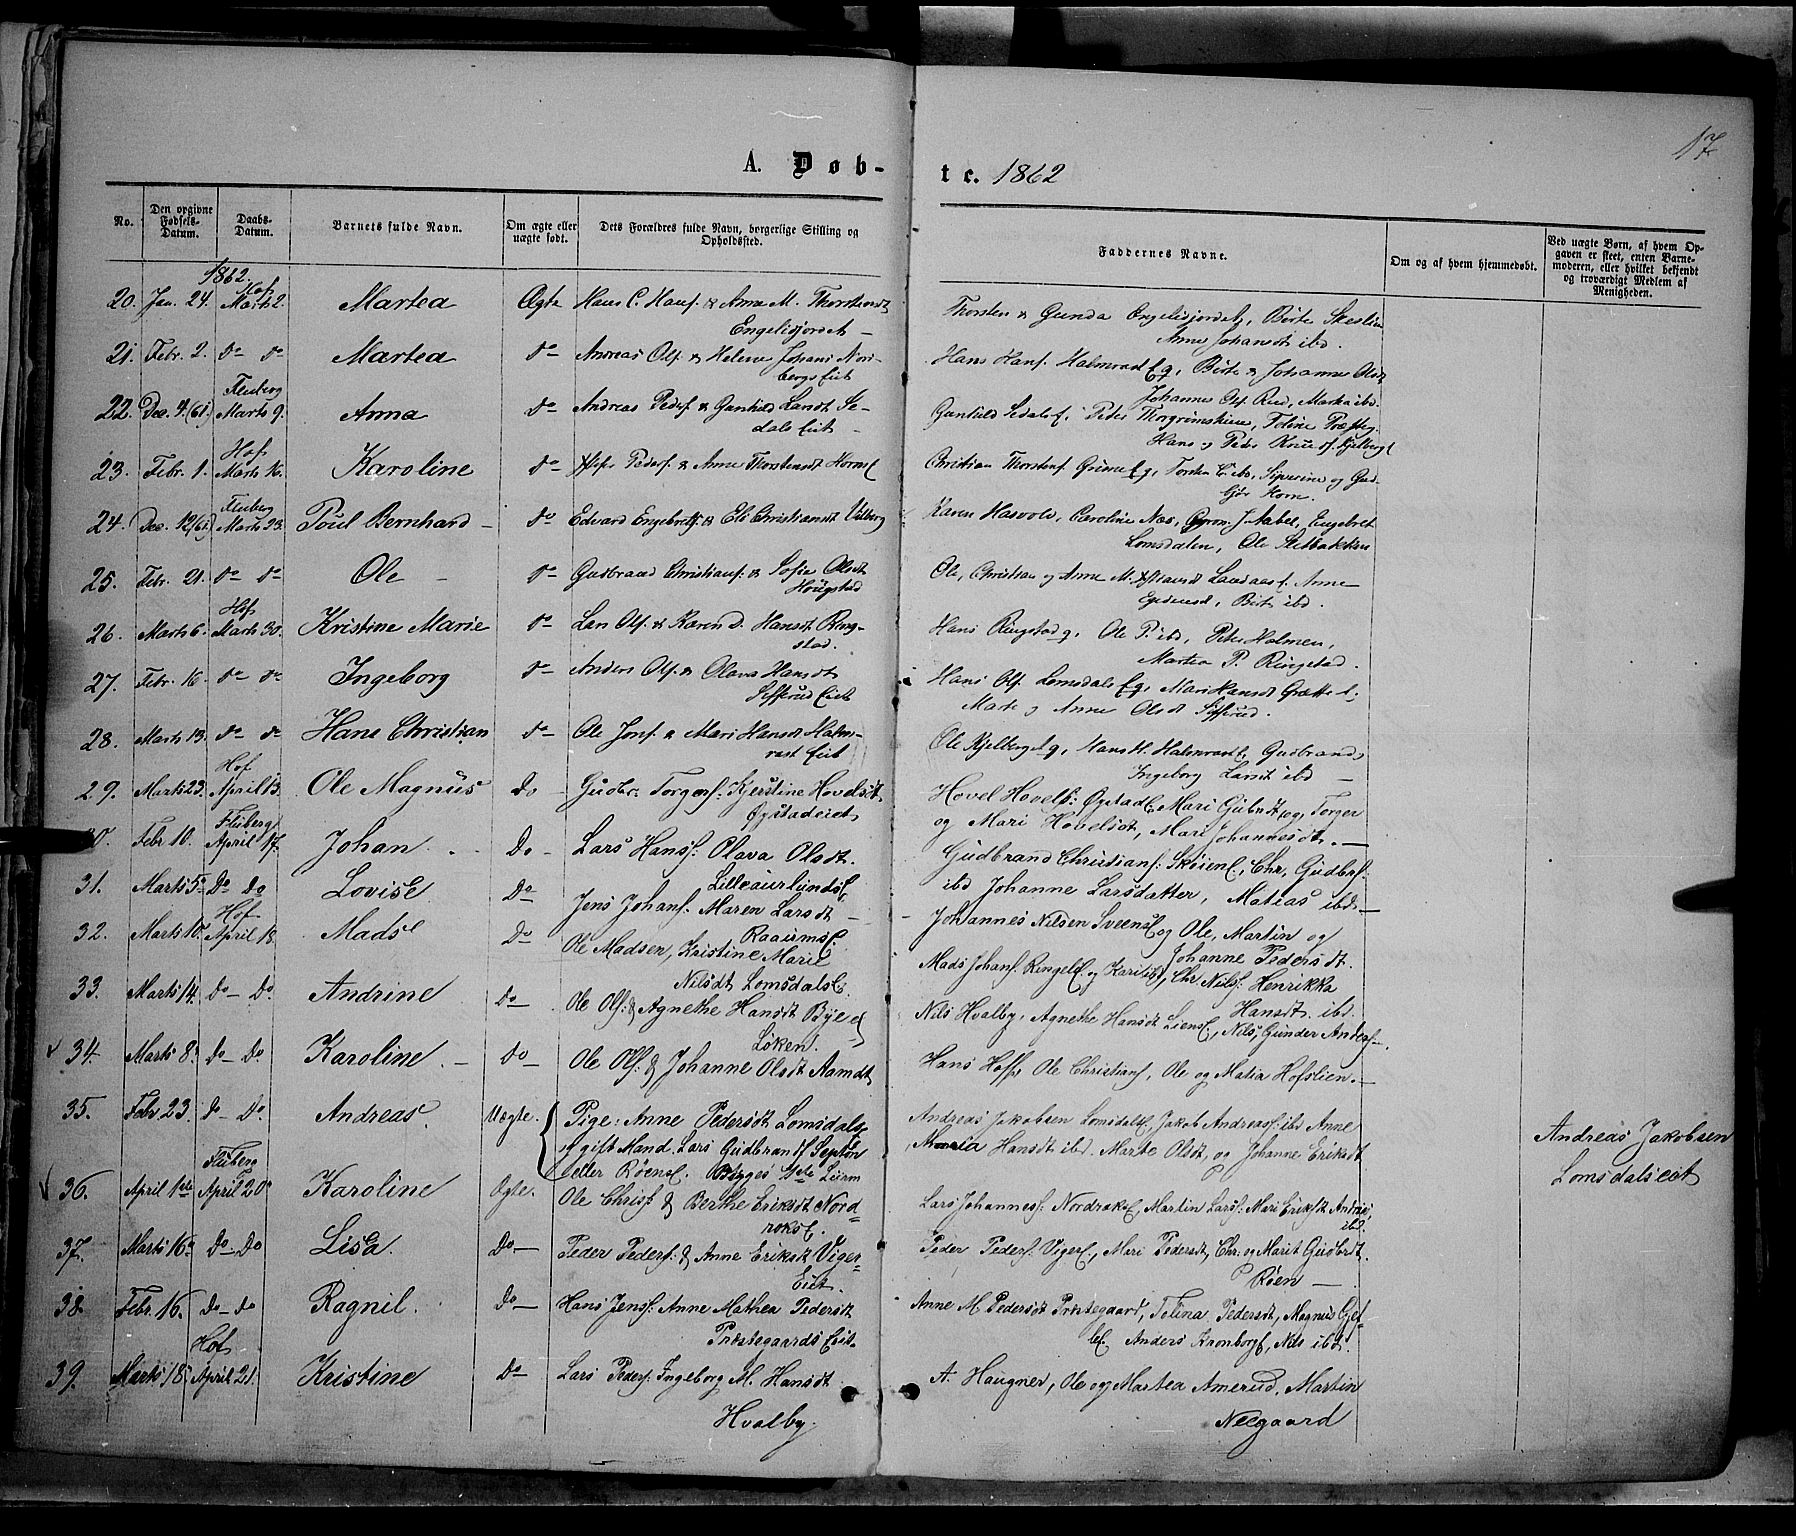 17
A. Døb-
te. 1862
No.
Den opgivne Fødsels-Datum.
Daabs-Datum.
Barnets fulde Navn.
Om ægte eller uægte født.
Dets Forældres fulde Navn, borgerlige Stilling og Opholdssted.
Faddernes Navne.
Om og af hvem hjemmedøbt.
Ved uægte Børn, af hvem Opgaven er skeet, enten Barnemoderen, eller hvilket bekjendt og troværdigt Medlem af Menigheden.
1862.
20. Jan. 24. Hof Marts 2. Martea Ægte Hans C. Hansf. & Anna M. Thorstensdt
Engelisjordet Thorsten & Gunda Engelisjordet, Birte
Anne Johansdt ibd.
21. Febr. 2. do do Martea do Andreas Olsf. & Helene Johansdt
bergs Eiet Hans Hansf. Halmrast Eg, Birte & Johanne Olsdt
Johannes Olsf. Rud, Marka ibd.
22. Dec. 4. (61) Fluberg Marts 9. Anna do Andreas Pedersf. & Gunhild Larsdt Se-
dals Eiet Gunhild Sedals E. Peder Thorgrimshuus, Toline Præsteg.
Hans og Peder Kjelberg E
23. Febr. 1. Hof Marts 16. Karoline do Pedersf. & Anne Thorstensdt Horns E
Christian Thorstenf. Grime Eg, Torsten C. ibd, Siverine og Gud-
Horn.
24. Dec. 12 (61) Fluberg Marts 23. Poul Bernhard do Edvard Engebretsf & Eli Christiansdt Vilberg
Karen Hasvold, Caroline Næs, J. Aabel, Engebret
Lomsdalen, Ole Sletbakken
25. Febr. 21. do do Ole do Gudbrand Christiansf. & Sofie Olsdt
Høugstad Ole, Christian og Anne M. Landaas E. Anne
Birte ibd.
26. Marts 6. Hof Marts 30. Kristine Marie do Lars Olsf. & Karen D. Hansdt Ring-
stad. Hans Ringstad g, Ole P. ibd, Peter Halmen,
Martea P. Ringstad.
27. Febr. 16 do do Ingeborg do Anders Olsf. & Olava Hansdt
Sifferud Eiet Hans Olsf. Lomsdals Eg, Mari Hansdt Grætte E
Marte og Anne Olsdt Sifferud.
28. Marts 13. do do Hans Christian do Ole Jonsf. & Mari Hansdt Halm-
rast Eiet Ole Kjelberg E g, Hans H. Halmrast E, Gudbrand
Ingeborg Larsdt ibd
29. Marts 23. Hof April 13. Ole Magnus Do Gudbr. Torgersf. Kjerstine Hovelsdt
Øystadeiet Hovel Hovelsf. Øystad E, Mari Gubrdt og Torger
og Mari Hovelsdt, Mari Johannesdt.
30. Febr 10. Fluberg April 17. Johan Do Lars Hansf. Olava Olsdt.
Lilleaurlunds E. Gudbrand Christiansf. Skøien E, Chr. Gudbrf.
ibd Johanne Larsdatter, Matias ibd.
31. Marts 5 Do Do Lovise Do Jens Johansf. Maren Larsdt
Raaums E. Johannes Nilsen Sveens E og Ole, Martin og
Johanne Pedersdt.
32. Marts 10. Hof April 18. Mads Do Ole Madsen, Kristine Marie
Nilsdt Lomsdals E. Mads Johansf. Ringel E og Kari ibd, Chr Nilsf. Henrikka
Hansdt. ibd.
33. Marts 14. Do Do Andrine Do Ole Olsf. & Agnethe Hansdt Bye E
Løken. Nils Hvalby, Agnethe Hansdt Liens E, Nils, Gunder Andersf.
34. Marts 8. Do Do Karoline. Do Ole Olsf. & Johanne Olsdt Aamdt
Hans Hoff, Ole Christiansf, Ole og Matia Hofslien.
35. Febr 23. Do Do Andreas. Uægte. Pige: Anne Pedersdt Lomsdals E
gift Mand. Lars Gudbrandsf.
eller Røens E.
Andreas Jakobsen Lomsdals E, Jakob Andreasf ibd Anne
Maria Hansdt ibd. Marte Olsdt, og Johanne Eriksdt
Andreas Jakobsen
Lomsdalseiet
36. April 1ste Fluberg April 20 Karoline Ægte. Ole Chrisf & Berthe Eriksdt Nord-
raks E. Lars Johannesf. Nordraks E, Martin Larsf. Mari Eriksdt Andrea
ibd.
37. Marts 16 Do Do Lisa. Do Peder Pedersf. & Anne Eriksdt Viger
Eiet. Peder Pedersf. Viger E, Mari Pedersdt, Chr. og Marit Gudbrdt.
Røen
38. Febr. 16. Do Do Ragnil. Do Hans Jensf. Anne Mathea Pedersdt
Præstegaards Eiet. Anne M Pedersdt Præstegaard, Telina Pedersdt, Magnus
Anders Kronborg E, Nils ibd.
39. Marts 18. Hof April 21. Kristine Do Lars Pedersf. Ingeborg M. Hansdt
Hvalby. A. Haugner, Ole og Martea Amerud, Martin
Neegaard